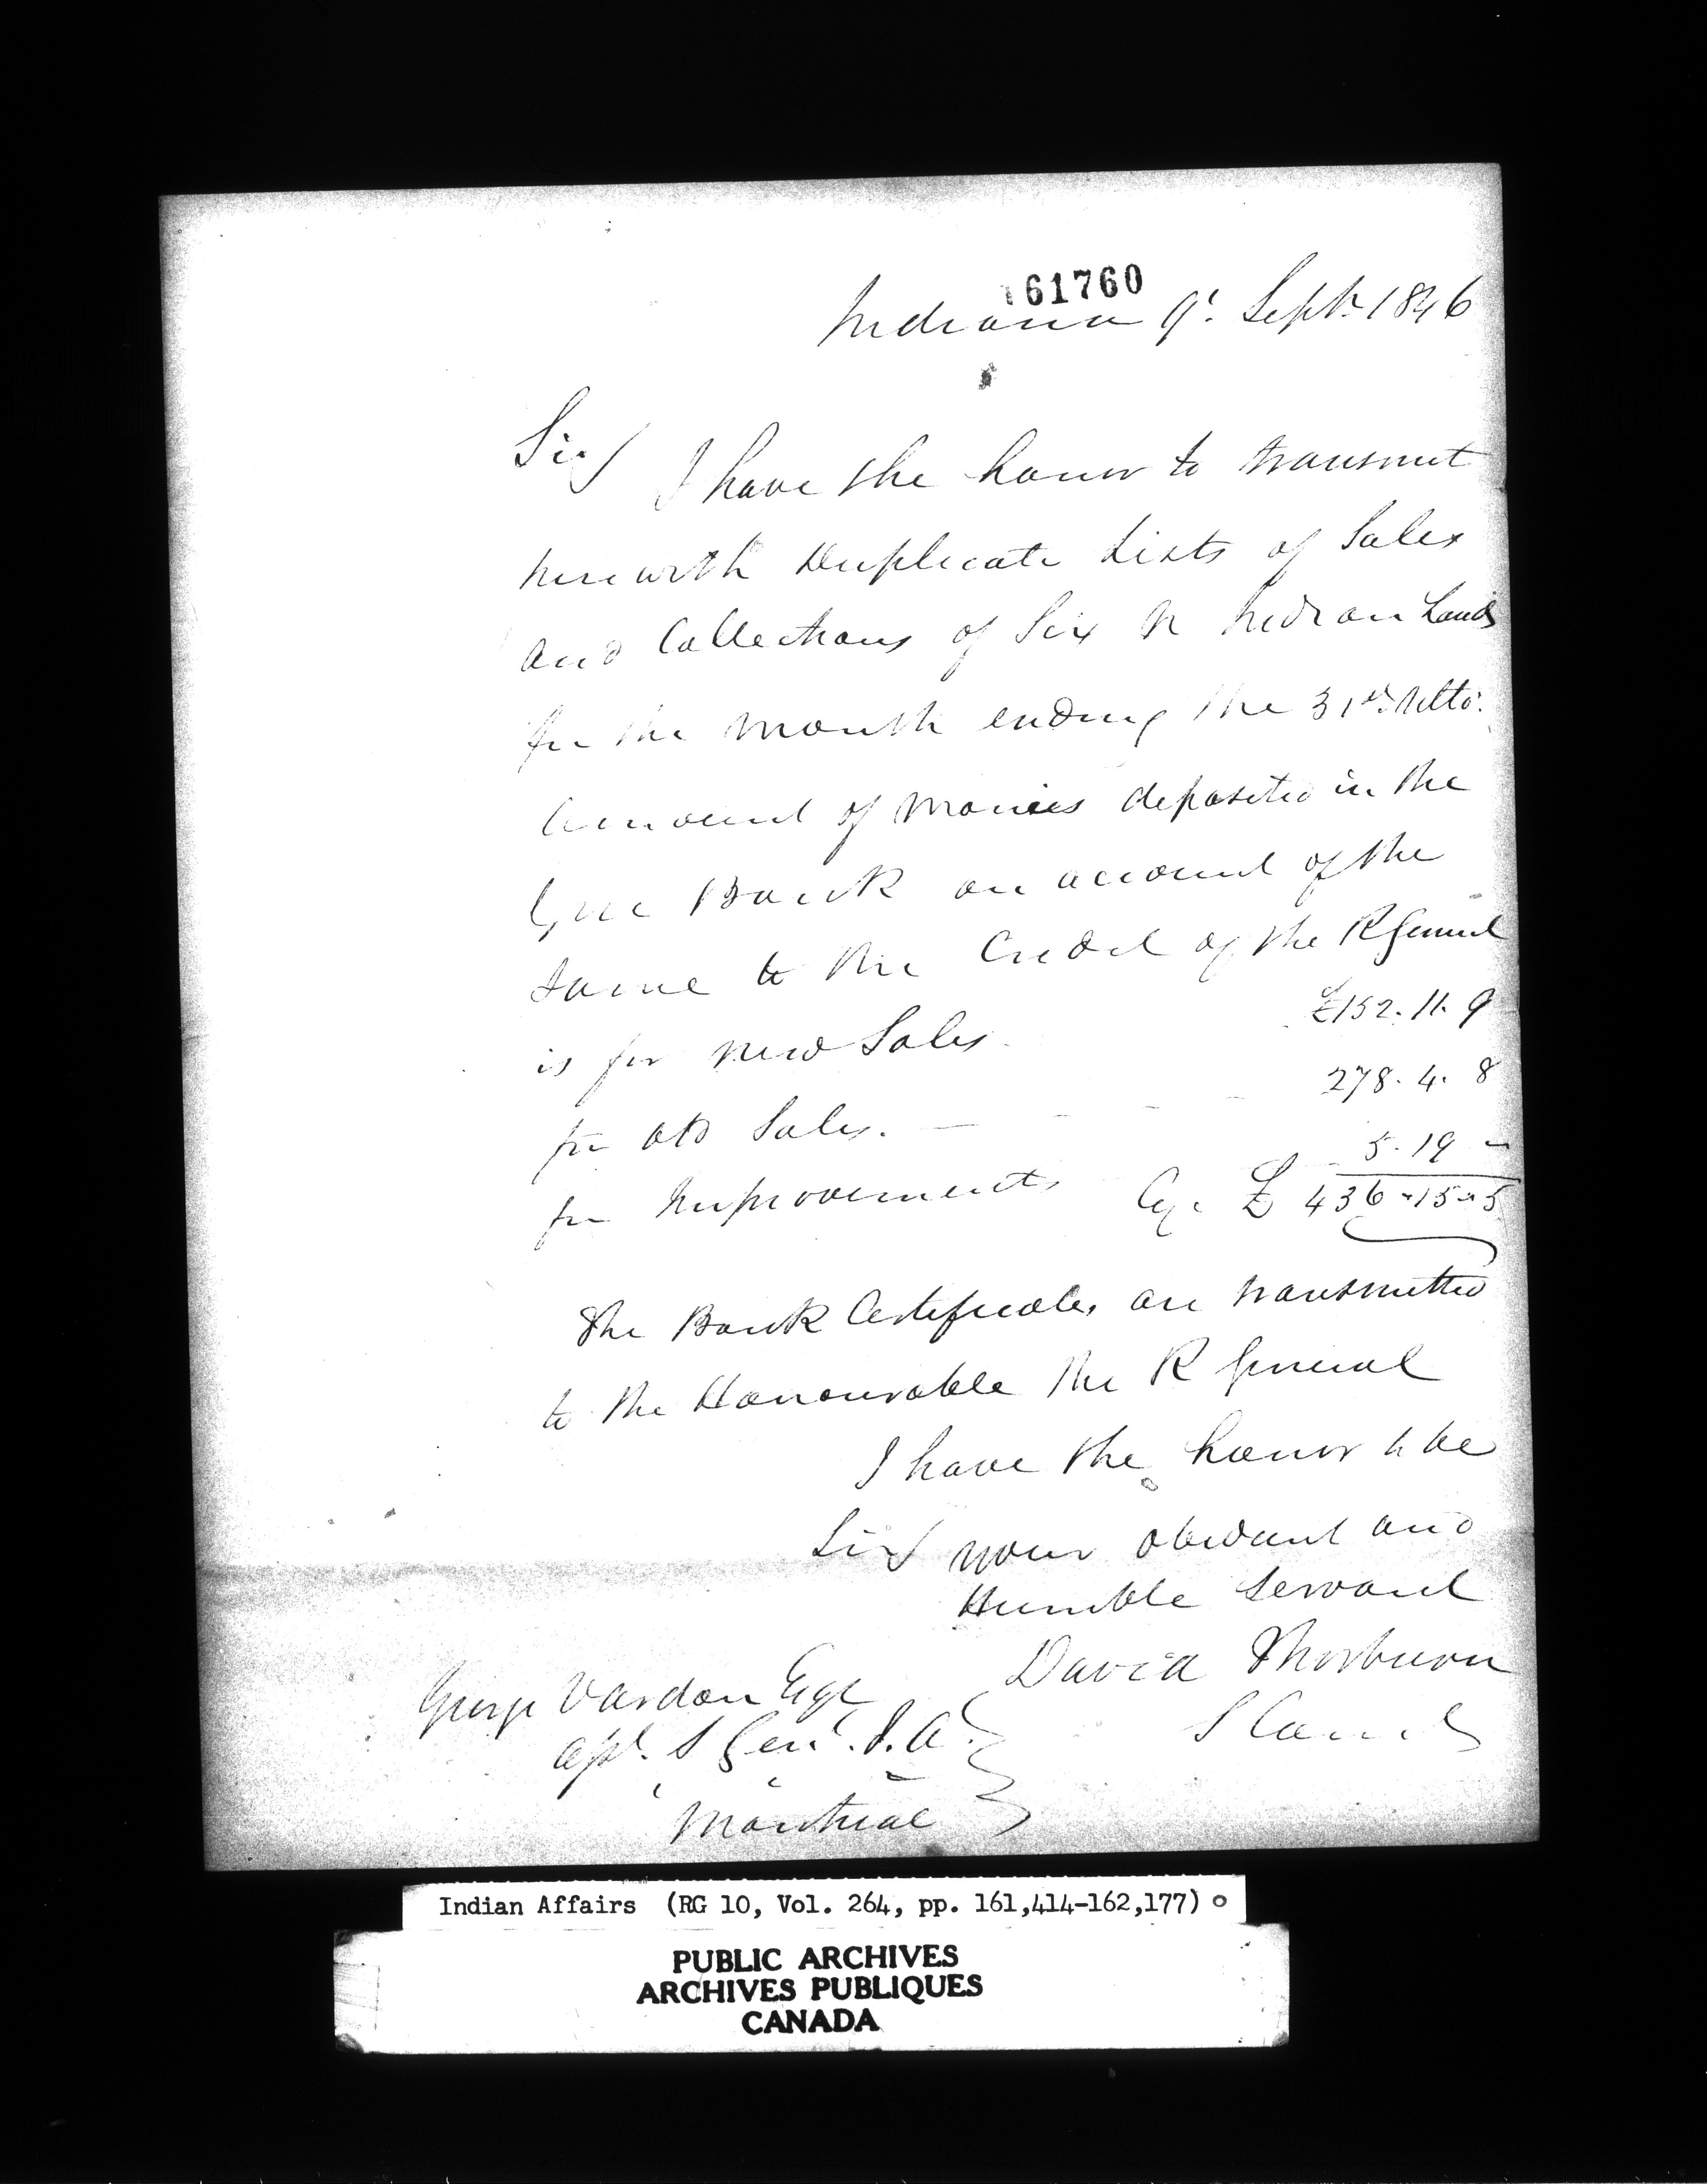 161760
Indiana 9th Septr 1846
Sir/
I have the honor to transmit
herewith Duplicate Lists of Sales
and Collections of Six N Indian Lands
for the month ending the 31st. Ulto.
Amount of monies deposited in the
Gore Bank on account of the
same to the Credit of the R General
is for new Sales. £152. 11. 9
for old Sales. — - - - 278. 4. 8
for Improvements 5. 19 -
Cy. £ 436-15-5
The Bank Certificates are transmitted
to the Honourable the R General
I have the honor to be
Sir your obedient and
Humble Servant
David Thorburn
George Vardon Esqr
S Genl. I. A.
Montreal
Indian Affairs (RG 10, Vol. 264, pp. 161,414-162,177)
PUBLIC ARCHIVES
ARCHIVES PUBLIQUES
CANADA